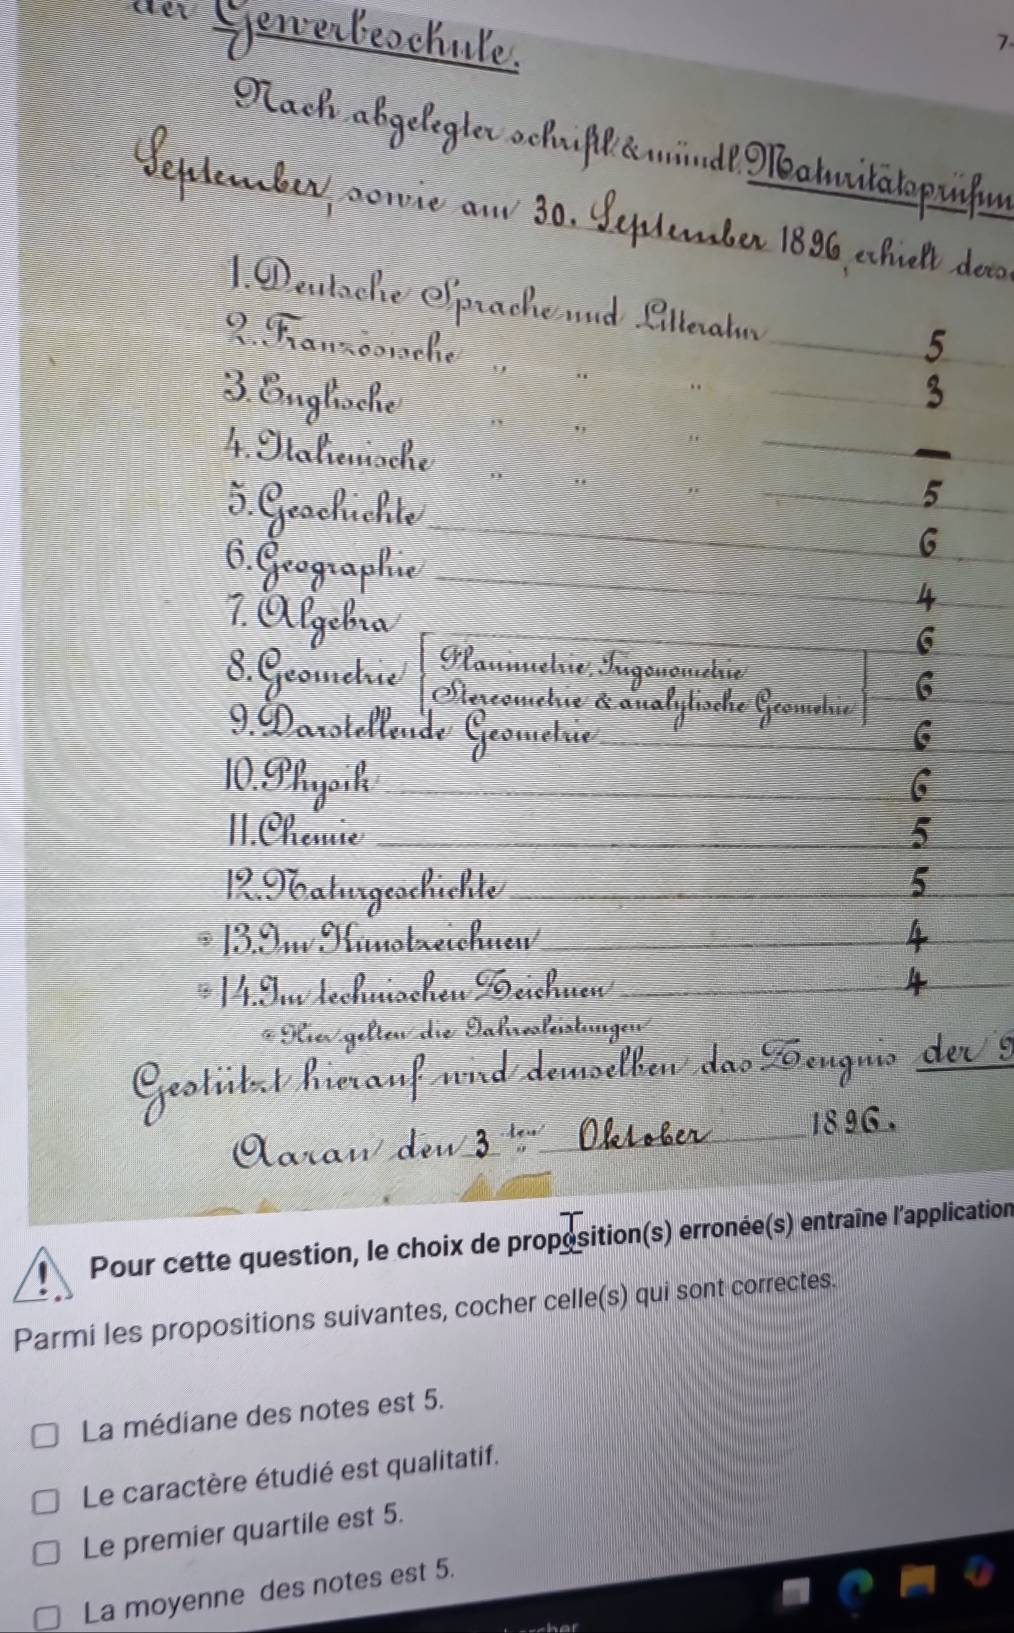 der Gewerbeschule.
7
Nach abgelegter schriftl. & mündl. Maturitätsprüfun
September, sowie am 30. September 1896, erhielt ders
1. Deutsche Sprache und Litteratur 5
2. Französische " " " 3
3. Englische " " " —
4. Italienische " " " 5
5. Geschichte 6
6. Geographie 4
7. Algebra 6
8. Geometrie [ Planimetrie, Trigonometrie 6
Stereometrie & analytische Geometrie ]
9. Darstellende Geometrie 6
10. Physik 6
11. Chemie 5
12. Naturgeschichte 5
* 13. Im Kunstzeichnen 4
* 14. Im technischen Zeichnen 4
* Hier gelten die Jahresleistungen
Gestützt hierauf wird demselben das Zeugnis der
Aarau den 3ten Oktober 1896.
Pour cette question, le choix de proposition(s) erronée(s) entraîne l'application
Parmi les propositions suivantes, cocher celle(s) qui sont correctes.
La médiane des notes est 5.
Le caractère étudié est qualitatif.
Le premier quartile est 5.
La moyenne des notes est 5.